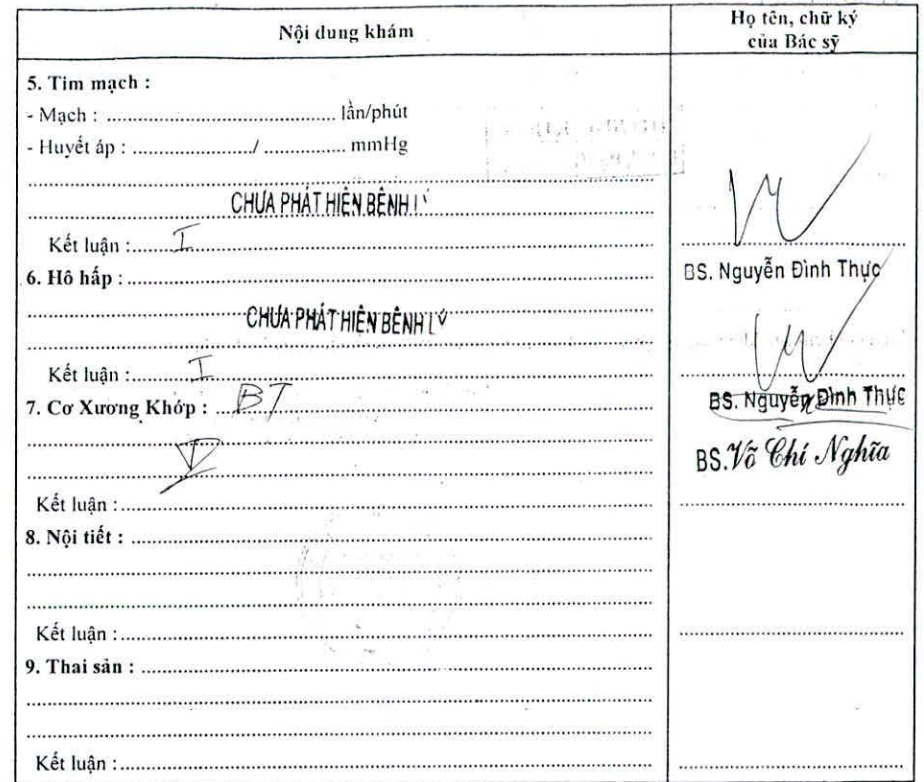 Nội dung khám
Họ tên, chữ ký
của Bác sỹ
5. Tim mạch :
- Mạch : ........................................ lần/phút
- Huyết áp : ...................../ ................. mmHg
CHƯA PHÁT HIỆN BỆNH LÝ
Kết luận :.......... I
BS. Nguyễn Đình Thực
6. Hô hấp :
CHƯA PHÁT HIỆN BỆNH LÝ
Kết luận :.......... I
BS. Nguyễn Đình Thực
7. Cơ Xương Khớp : BT
BS. Võ Chí Nghĩa
Kết luận :
8. Nội tiết :
Kết luận :
9. Thai sản :
Kết luận :